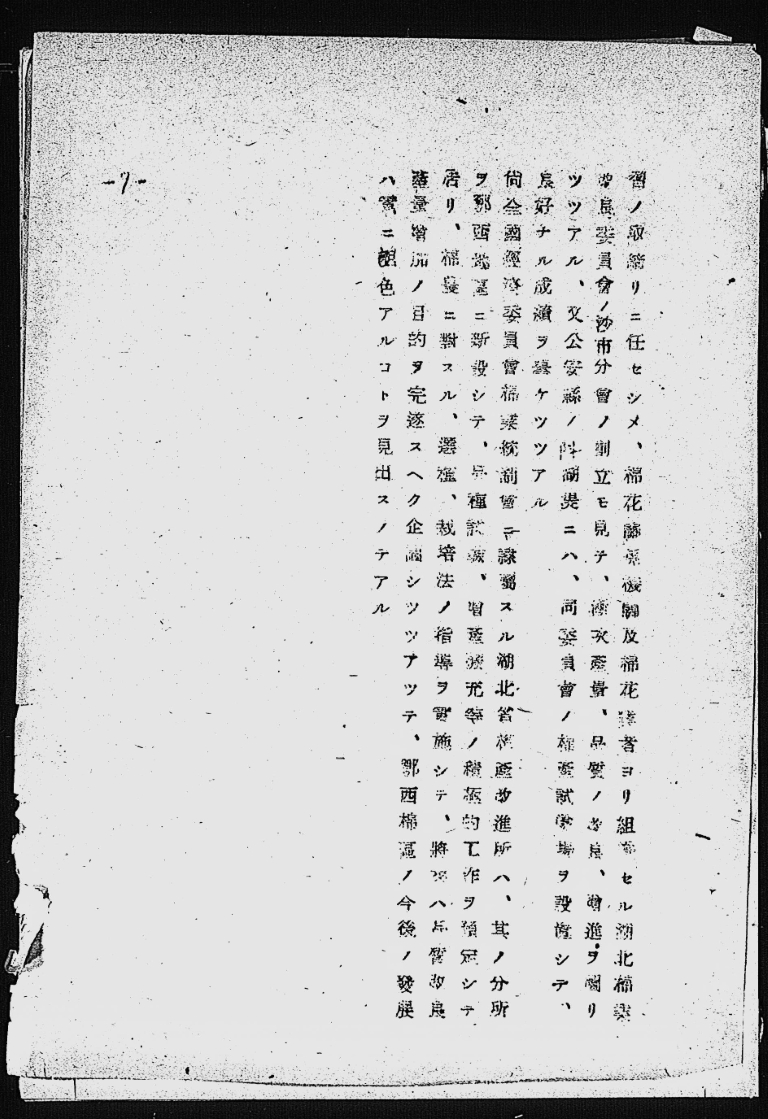 習ノ取締リニ任セシメ、棉花關係機關及棉花業者ヨリ組織セル湖北棉業
改良委員會ノ沙市分會ノ創立モ見テ、漸次產量、品質ノ改良、增進ヲ圖リ
ツツアル、又公安縣ノ陡湖堤ニハ、同委員會ノ棉產試驗場ヲ設置シテ、
良好ナル成績ヲ擧ケツツアル
尙全國經濟委員會棉業統制會ニ隸屬スル湖北省棉產改進所ハ、其ノ分所
ヲ鄂西地區ニ新設シテ、品種試驗、增產擴充等ノ積極的工作ヲ預定シテ
居リ、棉農ニ對スル、選種、栽培法ノ指導ヲ實施シテ、將來ハ品質改良
產量增加ノ目的ヲ完遂スヘク企圖シツツアツテ、鄂西棉區ノ今後ノ發展
ハ實ニ色アルコトヲ見出スノテアル
-7-